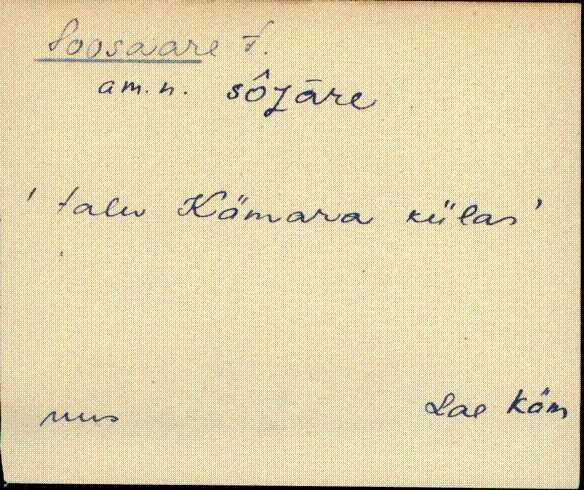 Soosaare t.
am.n. sôzāre
' talu Kämara külas'
nus
Lae Käm